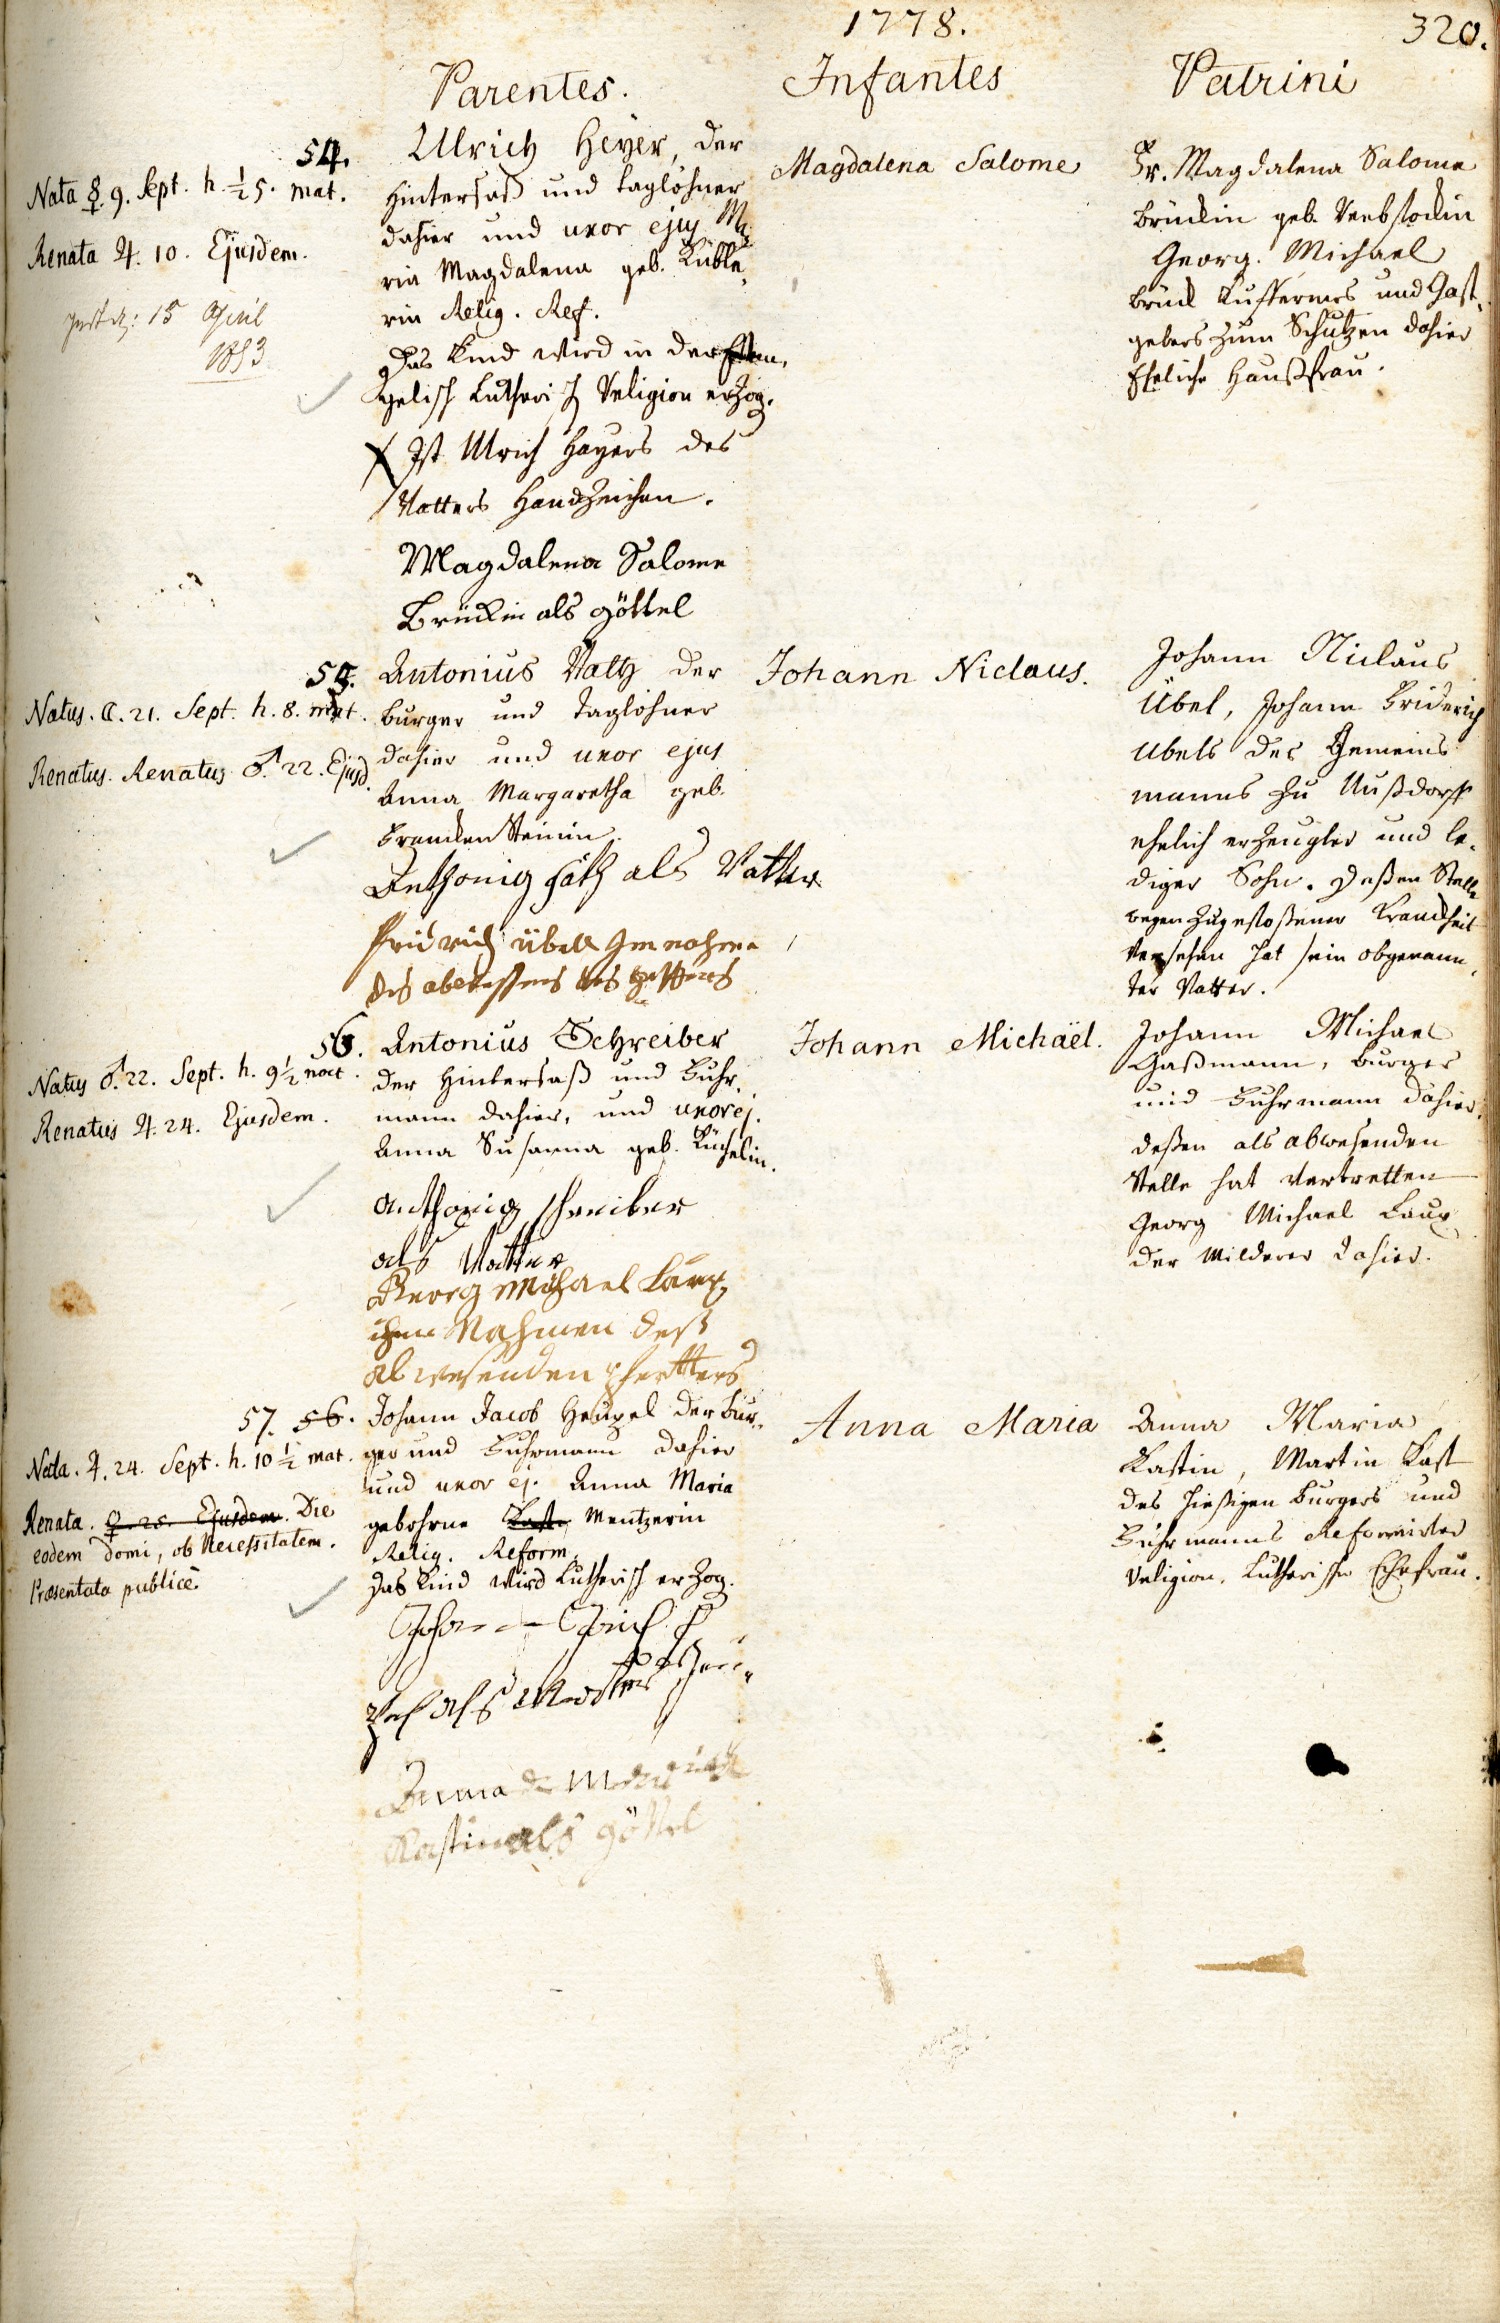 1778.
320.
Parentes.
Infantes
Patrini
54.
Nata ☿. 9. Sept. h. ½ 5. mat.
Renata ♃. 10. Ejusdem.
15 April
1853
Ulrich Heyer, der
Hintersaß und taglöhner
dahier und uxor ejus Ma
ria Magdalena geb. Küble,
rin Relig. Ref.
Das Kind wird in der Evan,
gelisch Lutherisch Religion erzog.
X Ist Ulrich Hayers des
Vatters Handzeichen.
Magdalena Salome
Brückin als göttel
Magdalena Salome
Fr. Magdalena Salome
Brückin geb. Rebstockin
Georg. Michael
Brück Kuffermrs und Gast,
gebers zum Schützen dahier
Eheliche Haußfrau.
55.
Natus. ☾. 21. Sept. h. 8. mat.
Renatus. Renatus ♂. 22. Ejusd.
Antonius Vatz der
burger und Taglöhner
dahier und uxor ejus
Anna Margaretha geb.
Franckensteinin.
Anthonig als Vatter
Fridrich übell Im nahme
des abwessens des
Johann Niclaus.
Johann Niclaus
Übel, Johann Friderich
Ubels des Gemeins
manns zu Nußdorff
ehelich erzeugter und le,
diger Sohn. Deßen Stelle
wegen zugestoßener Kranckheit
versehen hat sein obgenann,
ter Vatter.
56.
Natus ♂. 22. Sept. h. 9½ noct.
Renatus ♃. 24. Ejusdem.
Antonius Schreiber
der Hintersaß und Fuhr,
mann dahier, und uxor ej.
Anna Susanna geb. Küchelin.
Anthonig schreiber
als Vatter
Georg Michael Laux
ihm Nahmen deß
abwesenden pfertters
Johann Michaël.
Johann Michael
Gaßmann, burger
und Fuhrmann dahier,
deßen als abwesenden
Stelle hat vertretten
Georg Michael Laux,
der dahier.
57. 56.
Nata. ♃. 24. Sept. h. 10 ½ mat.
Renata. ♀. 25. Ejusdem. Die
eodem domi, ob Necessitatem.
Præsentata publicè.
Johann Jacob Heupel der Bur,
ger und Fuhrmann dahier
und uxor ej. Anna Maria
gebohrne Kast Mentzerin
Relig. Reform.
Das Kind wird Lutherisch erzog.
Johann Jacob
Heu,
pel als Vatter
Anna Maria
Kastin als göttel
Anna Maria
Anna Maria
Kastin, Martin Kast
des hiesigen burgers und
Fuhrmanns Reformirter
Religion, Lutherische Ehefrau.